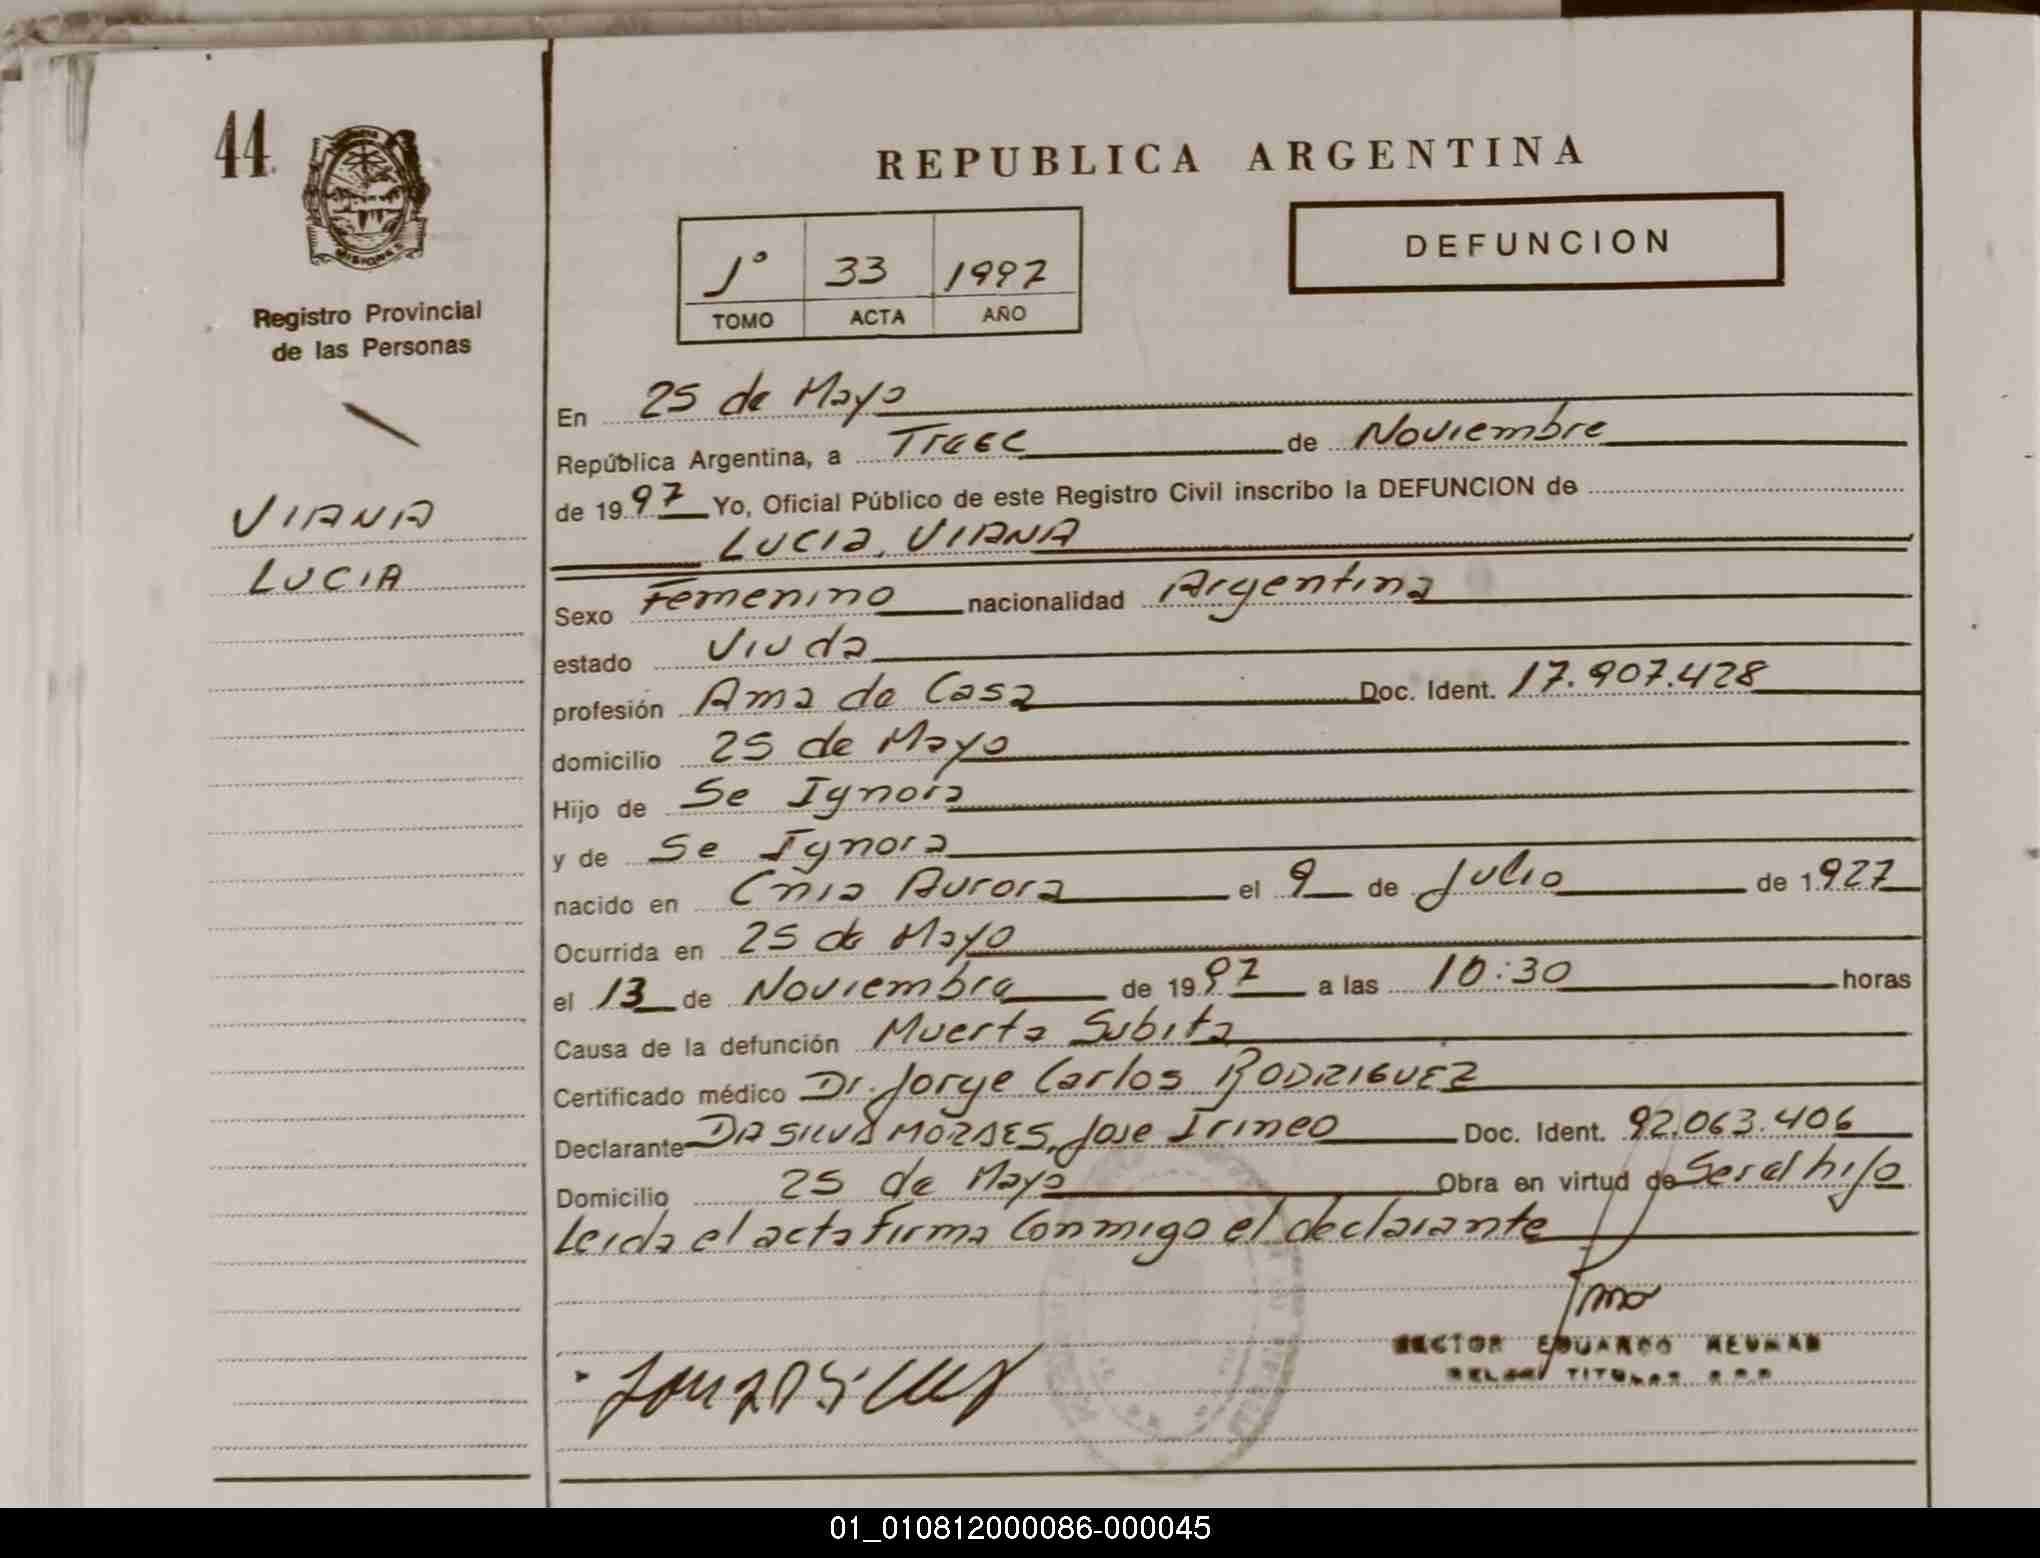 44
MISIONES
Registro Provincial
de las Personas
VIANA
LUCIA
REPUBLICA ARGENTINA
DEFUNCION
1° 33 1997
TOMO ACTA AÑO
En 25 de Mayo
República Argentina, a Trece de Noviembre
de 1997 Yo, Oficial Público de este Registro Civil inscribo la DEFUNCION de
Lucia, VIANA
Sexo Femenino nacionalidad Argentina
estado Viuda
profesión Ama de Casa Doc. Ident. 17.907.428
domicilio 25 de Mayo
Hijo de Se Ignora
y de Se Ignora
nacido en Cñia Aurora el 9 de Julio de 1.927
Ocurrida en 25 de Mayo
el 13 de Noviembre de 1997 a las 10:30 horas
Causa de la defunción Muerta Subita
Certificado médico Dr. Jorge Carlos RODRIGUEZ
Declarante DA SILVA MORAES, Jose Irineo Doc. Ident. 92.063.406
Domicilio 25 de Mayo Obra en virtud de Ser el hijo
Leida el acta firma conmigo el declarante
HECTOR EDUARDO NEUMAN
TITULAR
01_010812000086-000045